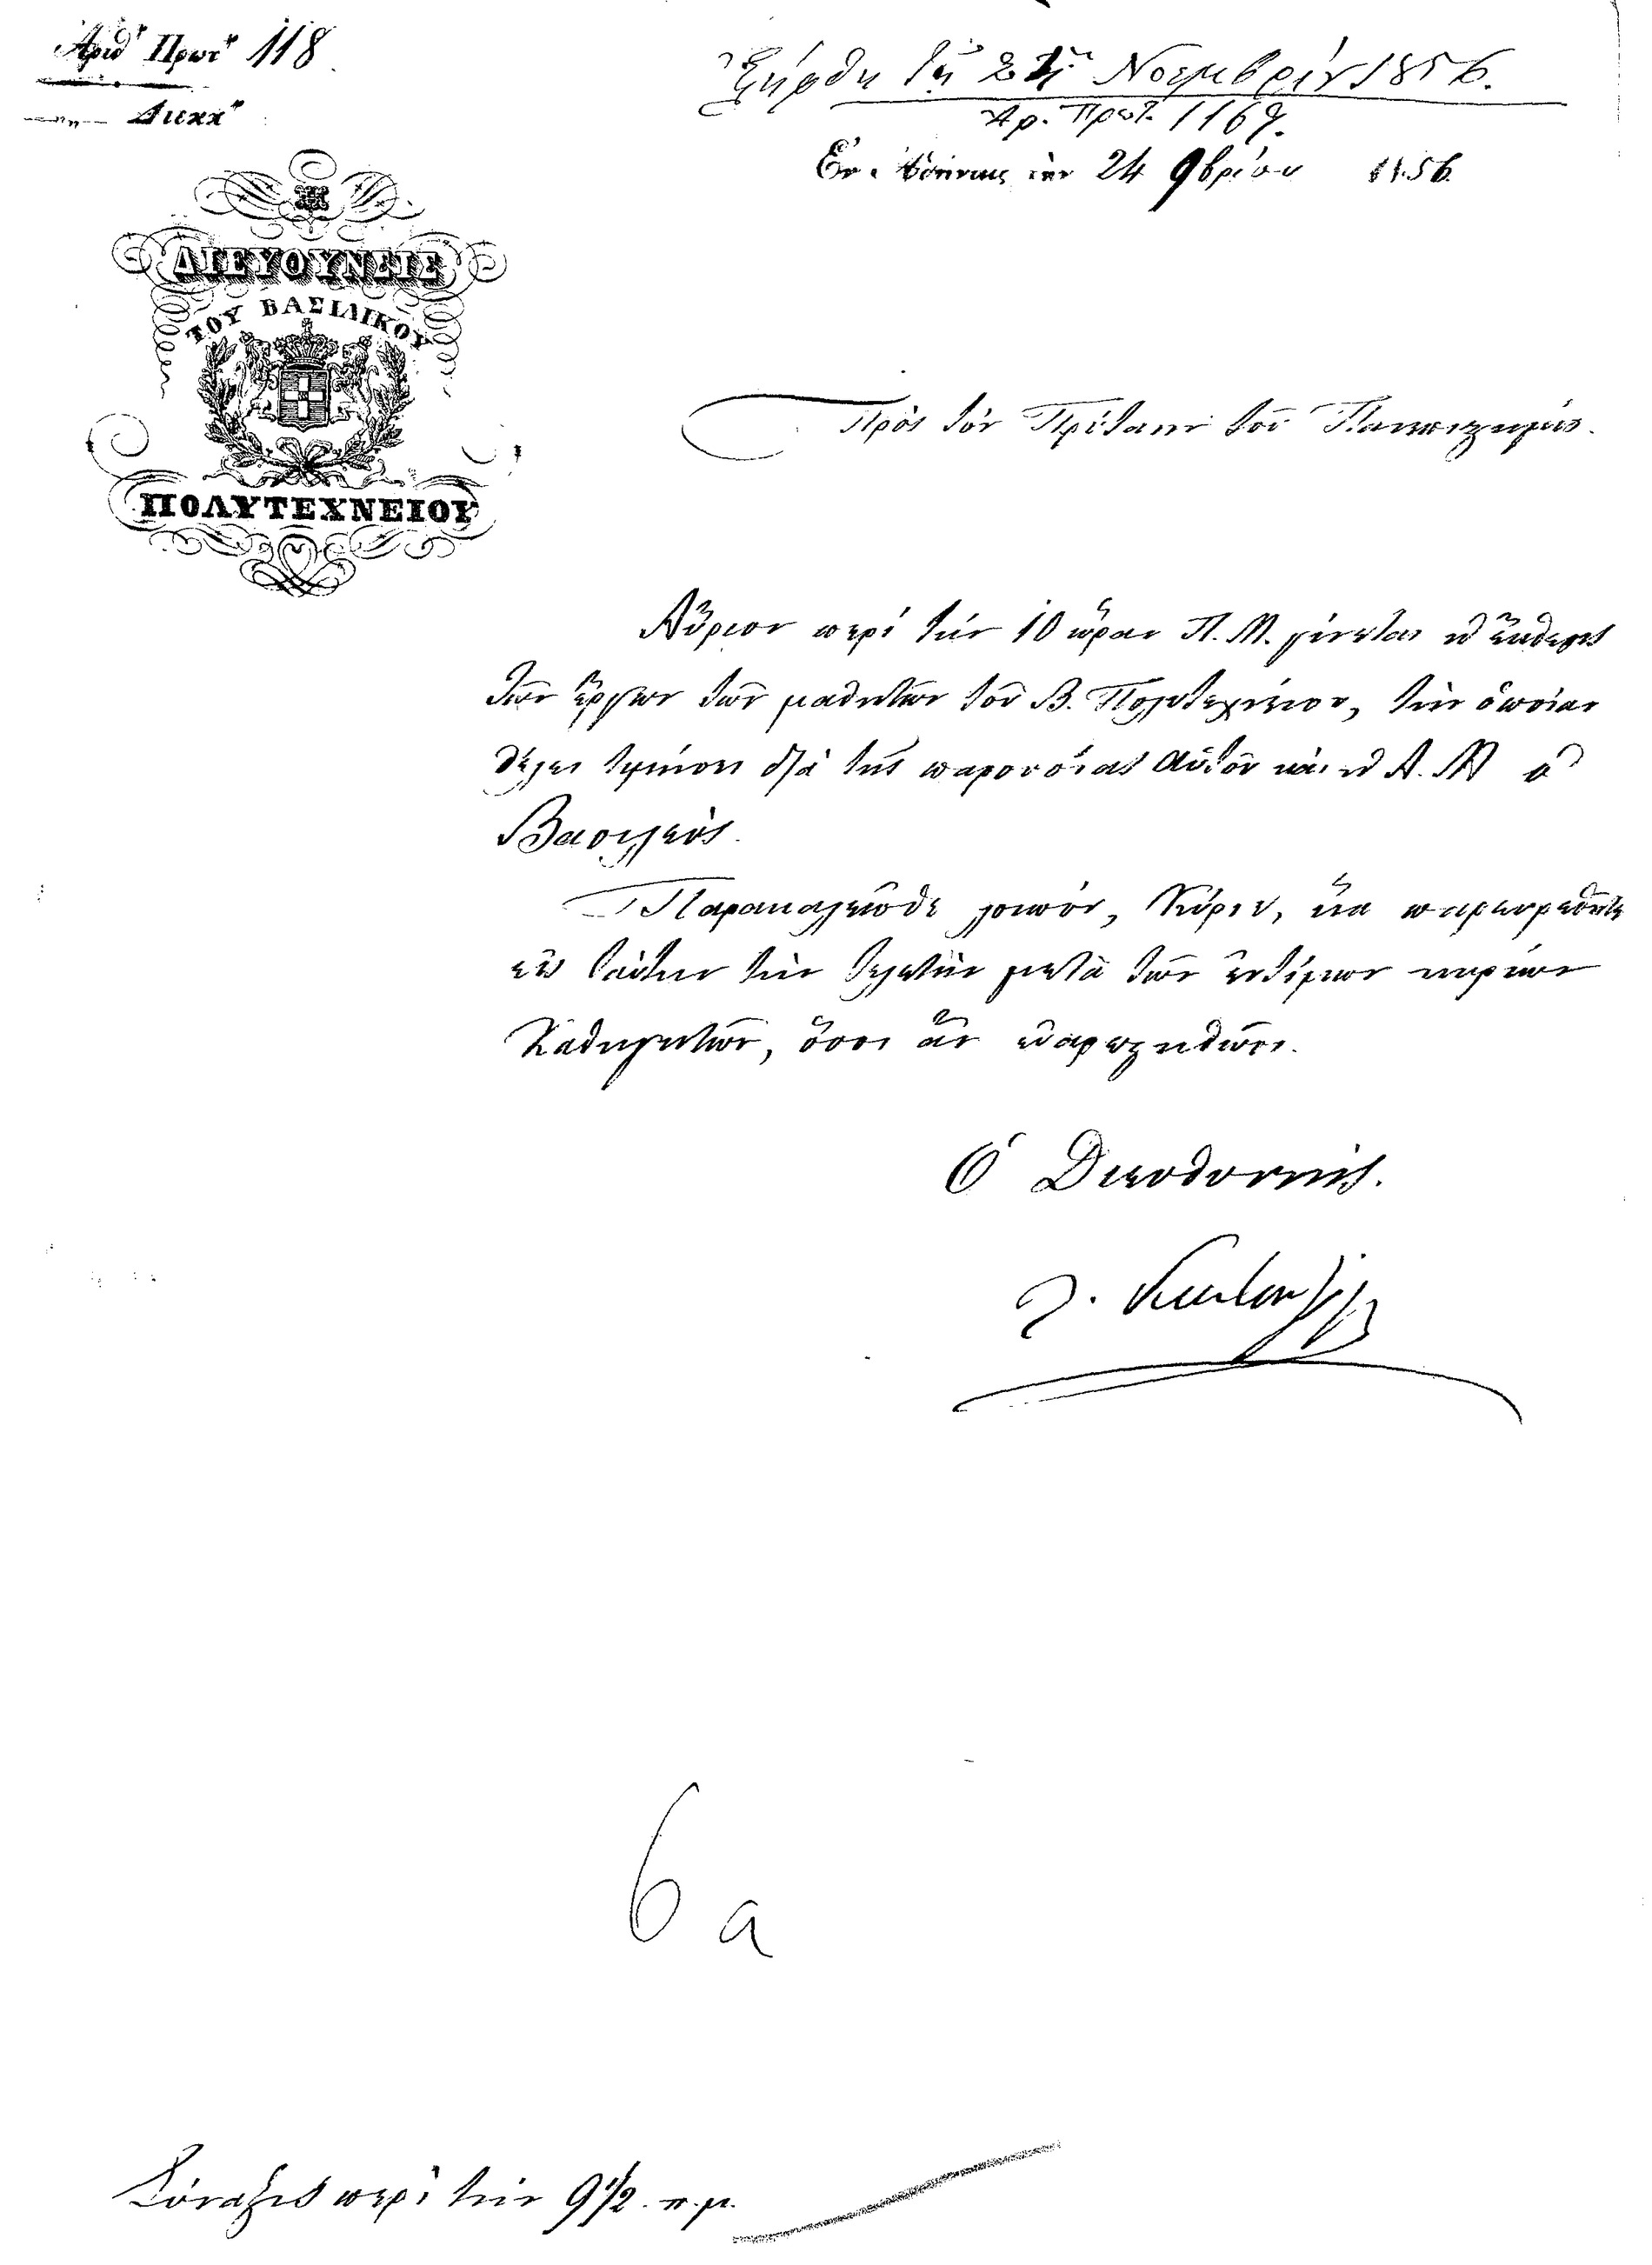 Ἀριθ. Πρωτ. 118
Διεκπ.
Ἐλήφθη τῇ 24ῃ Νοεμβρίου 1856.
Ἀρ. Πρωτ. 1167.
Ἐν Ἀθήναις τὴν 24 9βρίου 1856.
Η
ΔΙΕΥΘΥΝΣΙΣ
ΤΟΥ ΒΑΣΙΛΙΚΟΥ
ΠΟΛΥΤΕΧΝΕΙΟΥ
Πρὸς τὸν Πρύτανιν τοῦ Πανεπιστημίου.
Αὔριον περὶ τὴν 10 ὥραν Π. Μ. γίνεται ἡ ἔκθεσις
τῶν ἔργων τῶν μαθητῶν τοῦ Β. Πολυτεχνείου, τὴν ὁποίαν
θέλει τιμήσει διὰ τῆς παρουσίας Αὑτοῦ καὶ ἡ Α. Μ ὁ
Βασιλεύς.
Παρακαλεῖσθε λοιπόν, Κύριε, ἵνα παρευρεθῆτε
εἰς ταύτην τὴν τελετὴν μετὰ τῶν ἐντίμων κυρίων
Καθηγητῶν, ὅσοι ἂν εὐαρεστηθῶσι.
Ὁ Διευθυντής.
6 a
Σύναξις περὶ τὴν 9 1/2. π. μ.